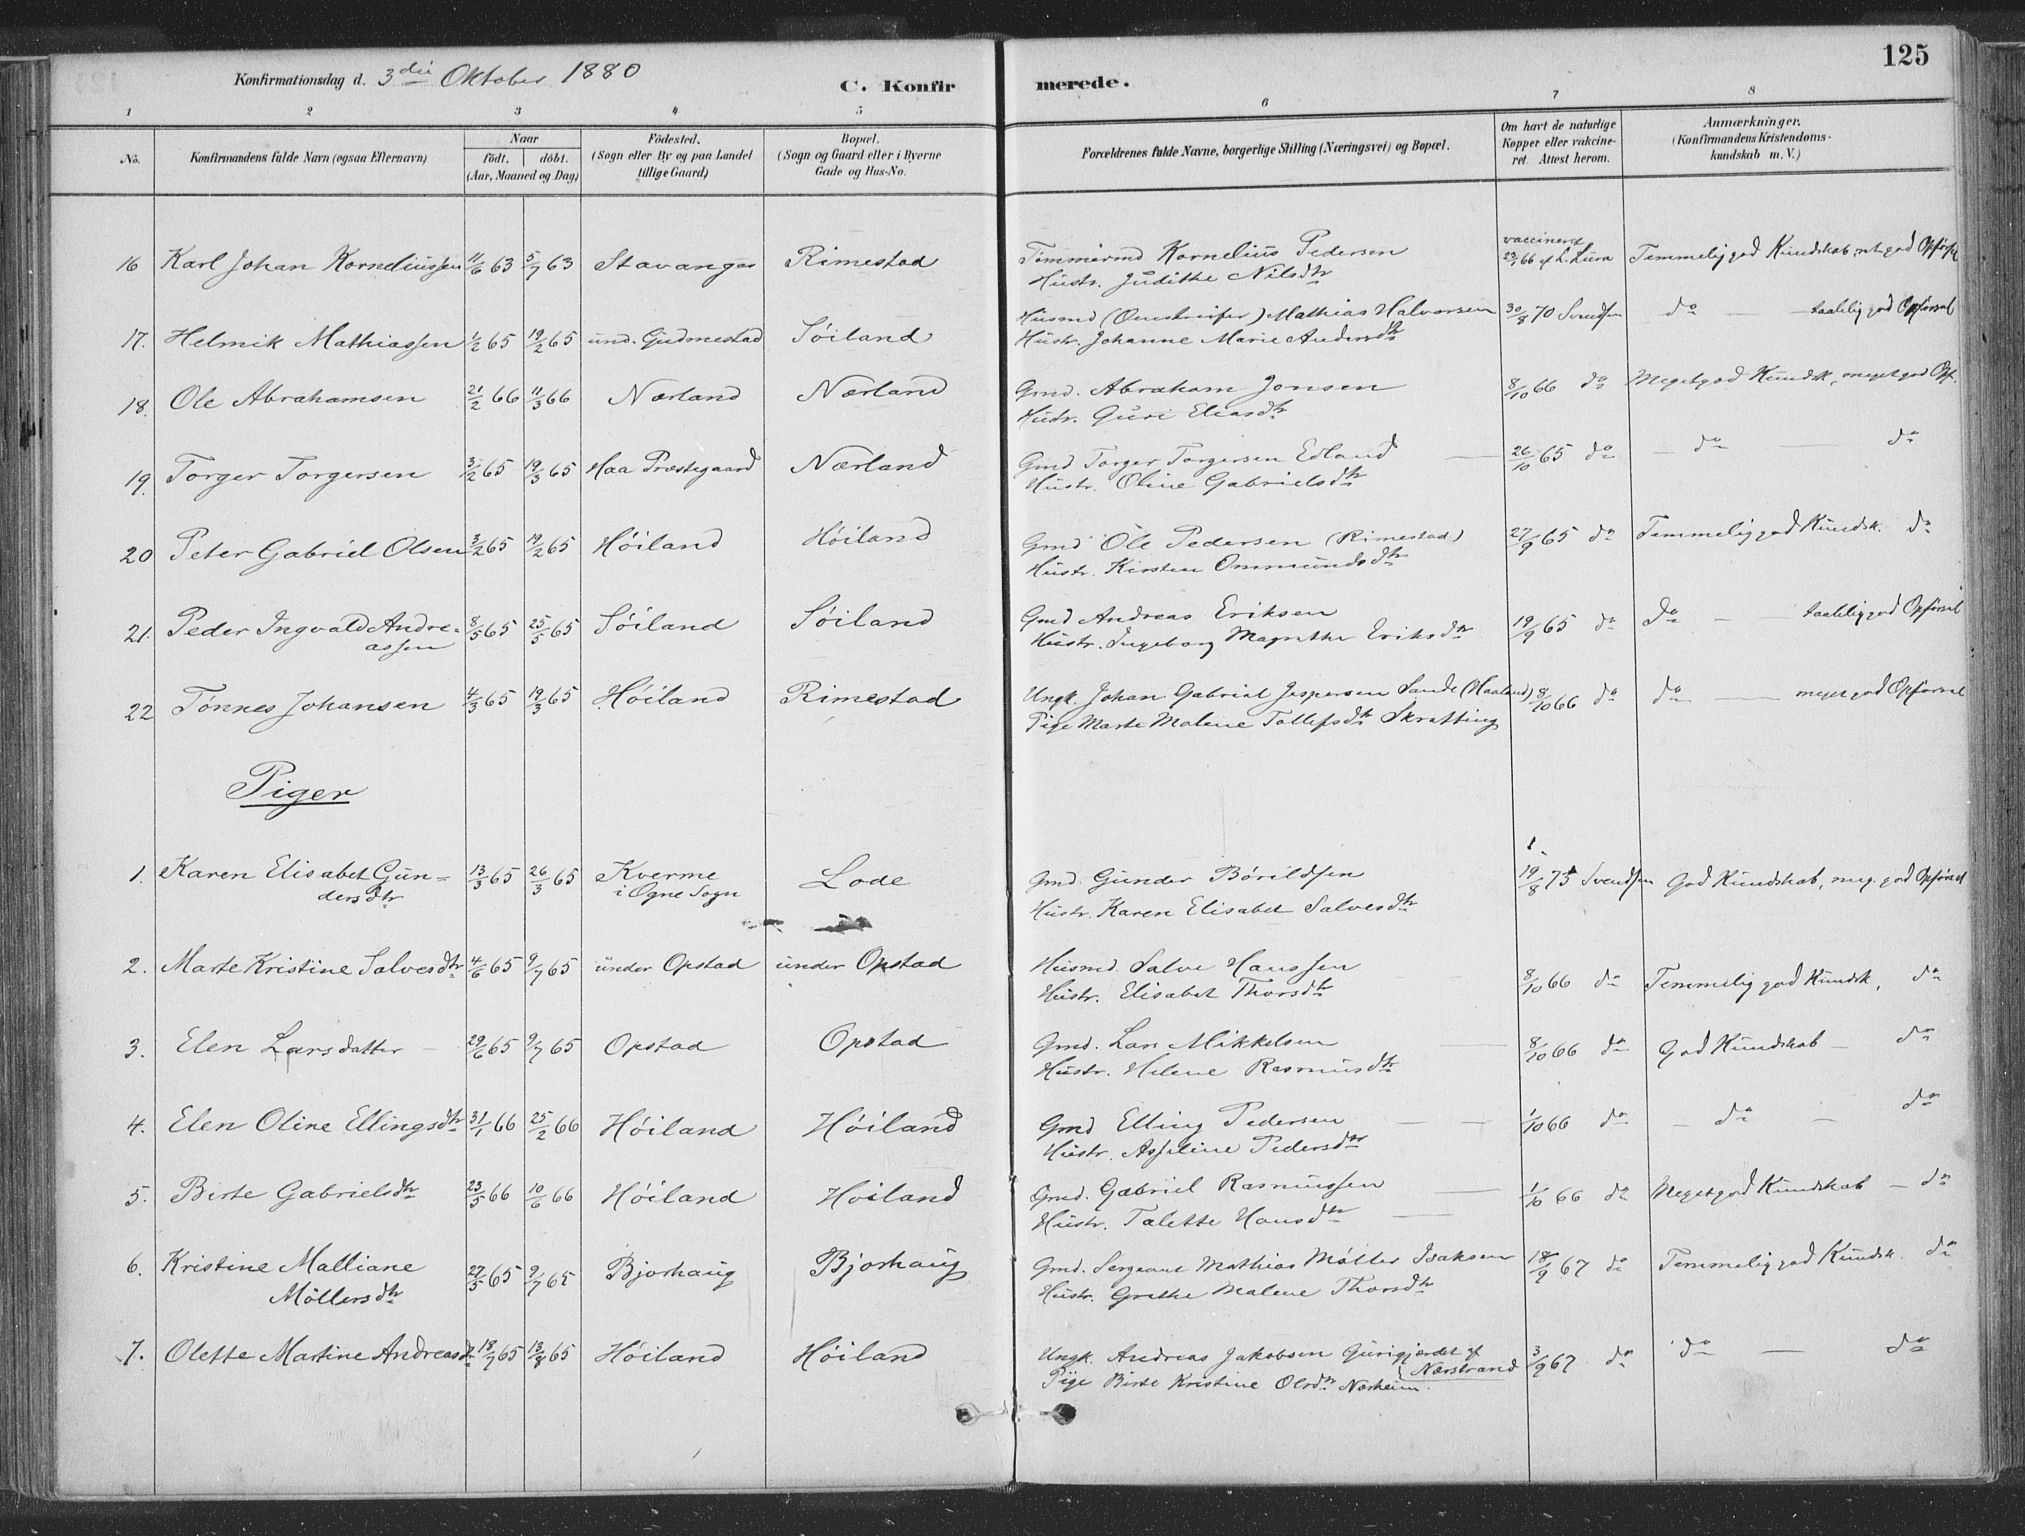 125
Konfirmationsdag d. 3die Oktober 1880
C. Konfirmerede.
1 2 3 4 5 6 7 8
No.
Konfirmandens fulde Navn (ogsaa Efternavn)
Naar
födt. döbt.
(Aar, Maaned og Dag)
Födested.
(Sogn eller By og paa Landet
tillige Gaard)
Bopæl.
(Sogn og Gaard eller i Byerne
Gade og Hus-No.
Forældrenes fulde Navne, borgerlige Stilling (Næringsvei) og Bopæl.
Om havt de naturlige
Kopper eller vakcine-
ret Attest herom.
Anmærkninger.
(Konfirmandens Kristendoms-
kundskab m. V.)
16 Karl Johan Korneliussen 11/6 63 5/7 63 Stavanger Rimestad Tømmermd Kornelius Pedersen vaccineret 23/1 66 af L. Lura Temmelig god Kundskab, ret god Opførsel
Hustr. Judithe Nilsdtr
17. Helmik Mathiassen 1/2 65 19/2 65 und. Gudmestad Søiland Husmd Mathias Halvorsen 30/8 70 Svendsen do taalelig god Opførsel
Hustr. Johanne Marie Andersdtr
18. Ole Abrahamsen 21/2 66 11/3 66 Nærland Nærland Gmd. Abraham Jonsen 8/10 66 do Meget god Kundsk., meget god Opf.
Hustr. Guri Eliasdtr
19. Torger Torgersen 3/2 65 19/3 65 Haa Præstegaard Nærland Gmd Torger Torgersen Edland 26/10 65 do do do
Hustr. Oline Gabrielsdtr
20 Peter Gabriel Olsen 3/2 65 19/2 65 Høiland Høiland Gmd Ole Pedersen (Rimestad) 27/9 65 do Temmelig god Kundsk. do
Hustr. Kirsten Ommundsdtr
21. Peder Ingvald Andre- 8/5 65 25/5 65 Søiland Søiland Gmd Andreas Eriksen 19/9 65 do do taalelig god Opførsel
assen Hustr. Ingeborg Magrethe Eriksdtr
22 Tønnes Johansen 4/3 65 19/3 65 Høiland Rimestad Ungk. Johan Gabriel Jespersen Sande (Haaland) 8/10 66 do do meget god Opførsel
Pige Marte Malene Tollefsdtr Skratting
Piger
1. Karen Elisabet Gun- 13/3 65 26/3 65 Kverme Lode Gmd. Gunder Børildsen 19/8 75 Svendsen God Kundskab, meg. god Opførsel
dersdtr i Ogne Sogn Hustr. Karen Elisabet Salvesdtr
2. Marte Kristine Salvesdtr 4/6 65 9/7 65 under Opstad under Opstad Husmd. Salve Hanssen 8/10 66 do Temmelig god Kundsk, do
Hustr. Elisabet Thorsdtr
3. Elen Larsdatter 29/6 65 9/7 65 Opstad Opstad Gmd. Lars Mikkelsen 8/10 66 do God Kundskab do
Hustr. Helene Rasmusdtr
4. Elen Oline Ellingsdtr 31/1 66 25/2 66 Høiland Høiland Gmd Elling Pedersen 1/10 66 do do do
Hustr. Asseline Pedersdtr
5. Birte Gabrielsdtr 23/5 66 10/6 66 Høiland Høiland Gmd. Gabriel Rasmussen 1/10 66 do Meget god Kundskab do
Hustr. Talette Hansdtr
6. Kristine Malliane 27/5 65 9/7 65 Bjorhaug Bjorhaug Gmd. Sergeant Mathias Møller Isaksen 18/9 67 do Temmelig god Kundsk. do
Møllersdtr Hustr. Grethe Malene Thorsdtr
7. Olette Martine Andreasd 18/7 65 13/8 65 Høiland Høiland Ungk. Andreas Jakobsen Gurigjerdet af 3/9 67 do do do
Nærstrand
Pige Birte Kristine Olsdtr Nærheim.